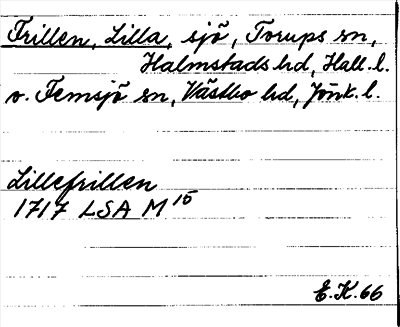 Frillen, Lilla, sjö, Torups sn,
Halmstads hd, Hall. l.
o. Femsjö sn, Västbo hd, Jönk. l.
Lillefrillen
1717 LSA M 15
E.K. 66